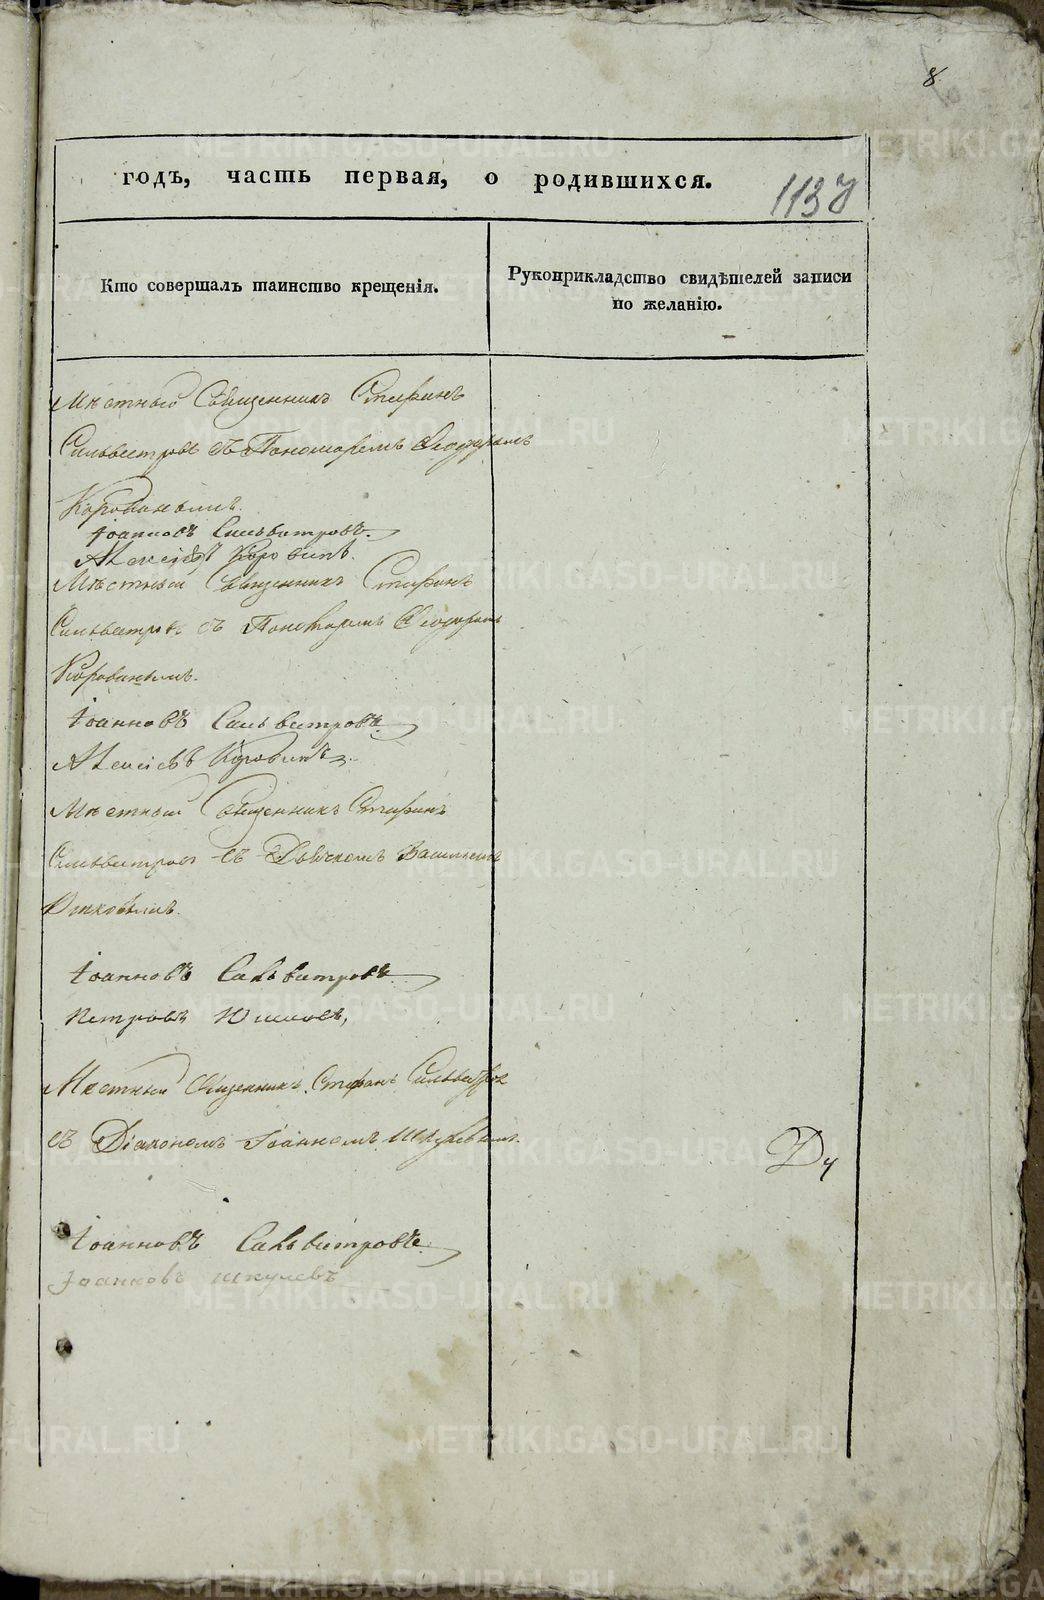 8
годъ, часть первая, о родившихся.
1137
Кто совершалъ таинство крещенія.
Рукоприкладство свидѣтелей записи
по желанію.
Мѣстный Священникъ Стефанъ
Сильвестровъ съ Пономаремъ Ѳеодоромъ
Коровинымъ.
Іоанновъ Сильвестровъ.
Алексіевъ Коровинъ.
Мѣстный Священникъ Стефанъ
Сильвестровъ съ Пономаремъ Ѳеодоромъ
Коровинымъ.
Іоанновъ Сильвестровъ.
Алексіевъ Коровинъ.
Мѣстный Священникъ Стефанъ
Сильвестровъ съ Дьячкомъ Василіемъ
Іоанновъ Сильвестровъ.
Петровъ
Мѣстный Священникъ Стефанъ Сильвестровъ
съ Діакономъ Іоанномъ Шкулевымъ.
Іоанновъ Сильвестровъ.
Іоанновъ Шкулевъ
METRIKI.GASO-URAL.RU